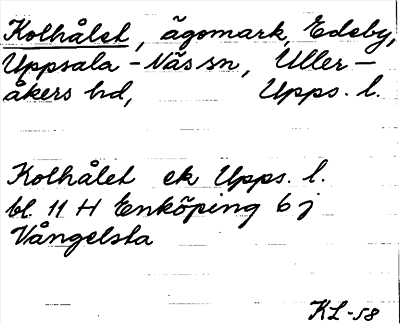 Kolhålet, ägomark, Edeby,
Uppsala-Näs sn, Uller-
åkers hd, Upps. l.
Kolhålet ek Upps. l.
bl. 11 H Enköping 6 j
Vångelsta
KL-58